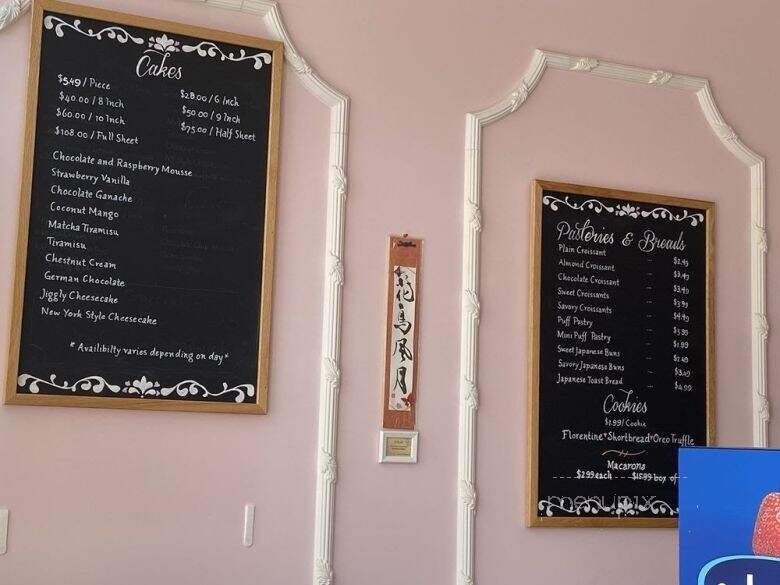 Cakes
$5.49 / Piece
$28.00 / 6 Inch
$40.00 / 8 Inch
$50.00 / 9 Inch
$60.00 / 10 Inch
$75.00 / Half Sheet
$108.00 / Full Sheet
Chocolate and Raspberry Mousse
Strawberry Vanilla
Chocolate Ganache
Coconut Mango
Matcha Tiramisu
Tiramisu
Chestnut Cream
German Chocolate
Jiggly Cheesecake
New York Style Cheesecake
* Availibilty varies depending on day *
花鳥風月
Pasteries & Breads
Plain Croissant ... $2.95
Almond Croissant ... $3.49
Chocolate Croissant ... $3.49
Sweet Croissants ... $3.99
Savory Croissants ... $4.49
Puff Pastry ... $3.99
Mini Puff Pastry ... $1.99
Sweet Japanese Buns ... $2.49
Savory Japanese Buns ... $3.49
Japanese Toast Bread ... $4.99
Cookies
$2.99 / Cookie
Florentine Shortbread Oreo Truffle
Macarons
$2.99 each $15.99 box of
menupix